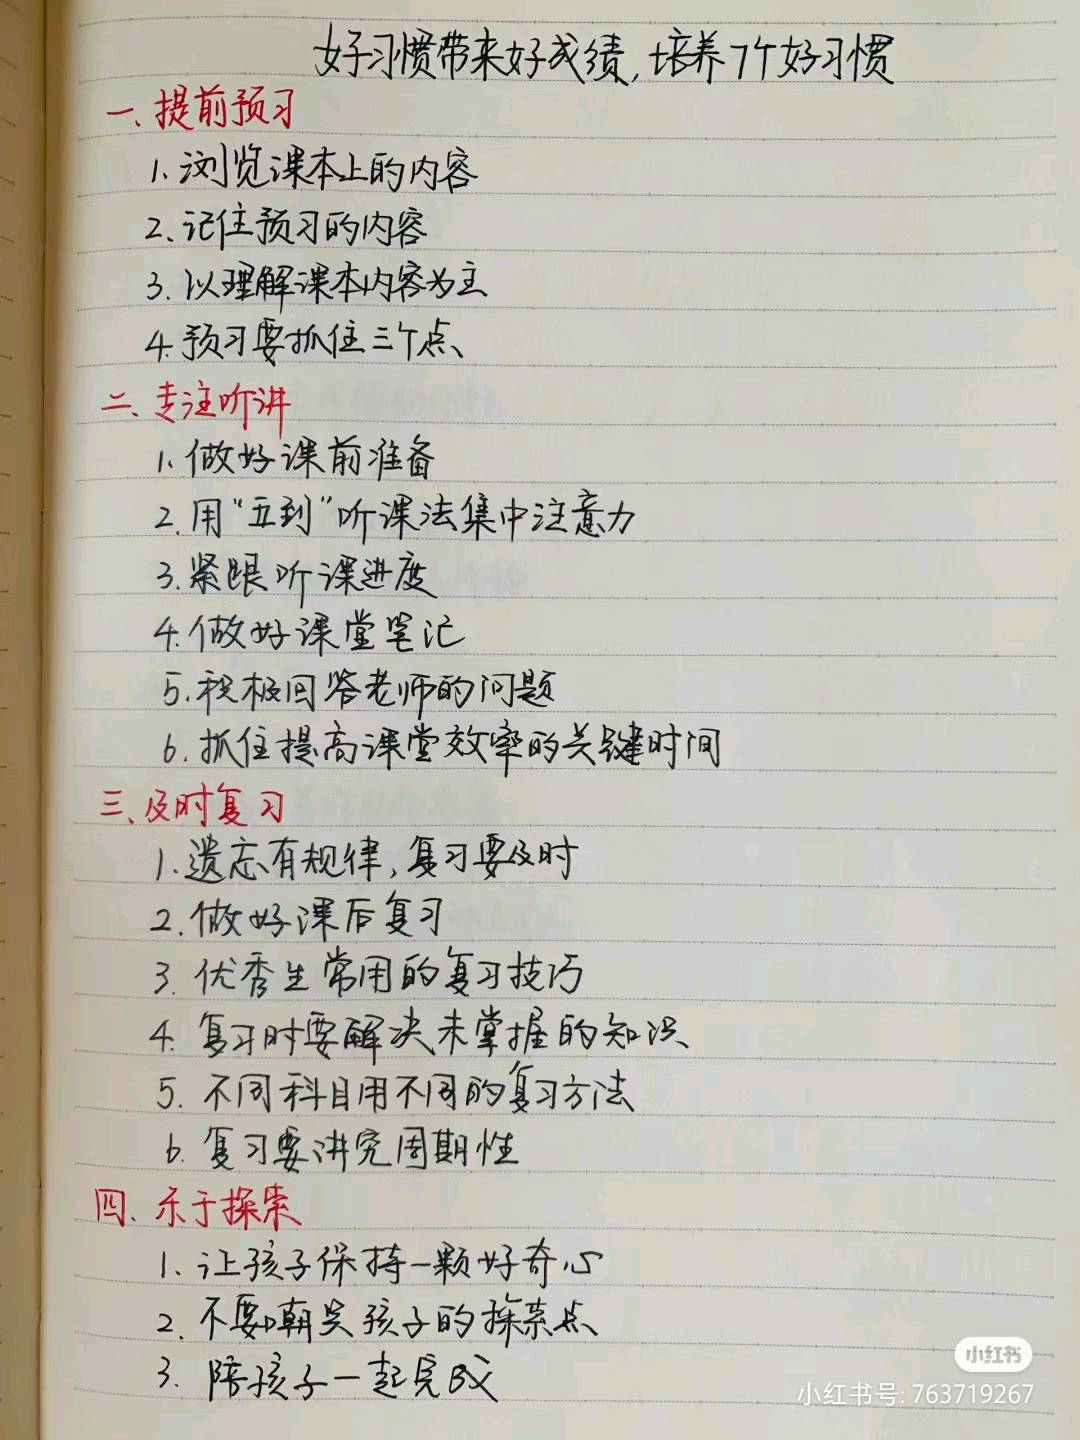 好习惯带来好成绩,培养7个好习惯
一、提前预习
1.浏览课本上的内容
2.记住预习的内容
3.以理解课本内容为主
4.预习要抓住三个点
二、专注听讲
1.做好课前准备
2.用“五到”听课法集中注意力
3.紧跟听课进度
4.做好课堂笔记
5.积极回答老师的问题
6.抓住提高课堂效率的关键时间
三、及时复习
1.遗忘有规律,复习要及时
2.做好课后复习
3.优秀生常用的复习技巧
4.复习时要解决未掌握的知识
5.不同科目用不同的复习方法
6.复习要讲究周期性
四、乐于探索
1、让孩子保持一颗好奇心
2.不要嘲笑孩子的探索点
3.陪孩子一起完成
小红书
小红书号: 763719267